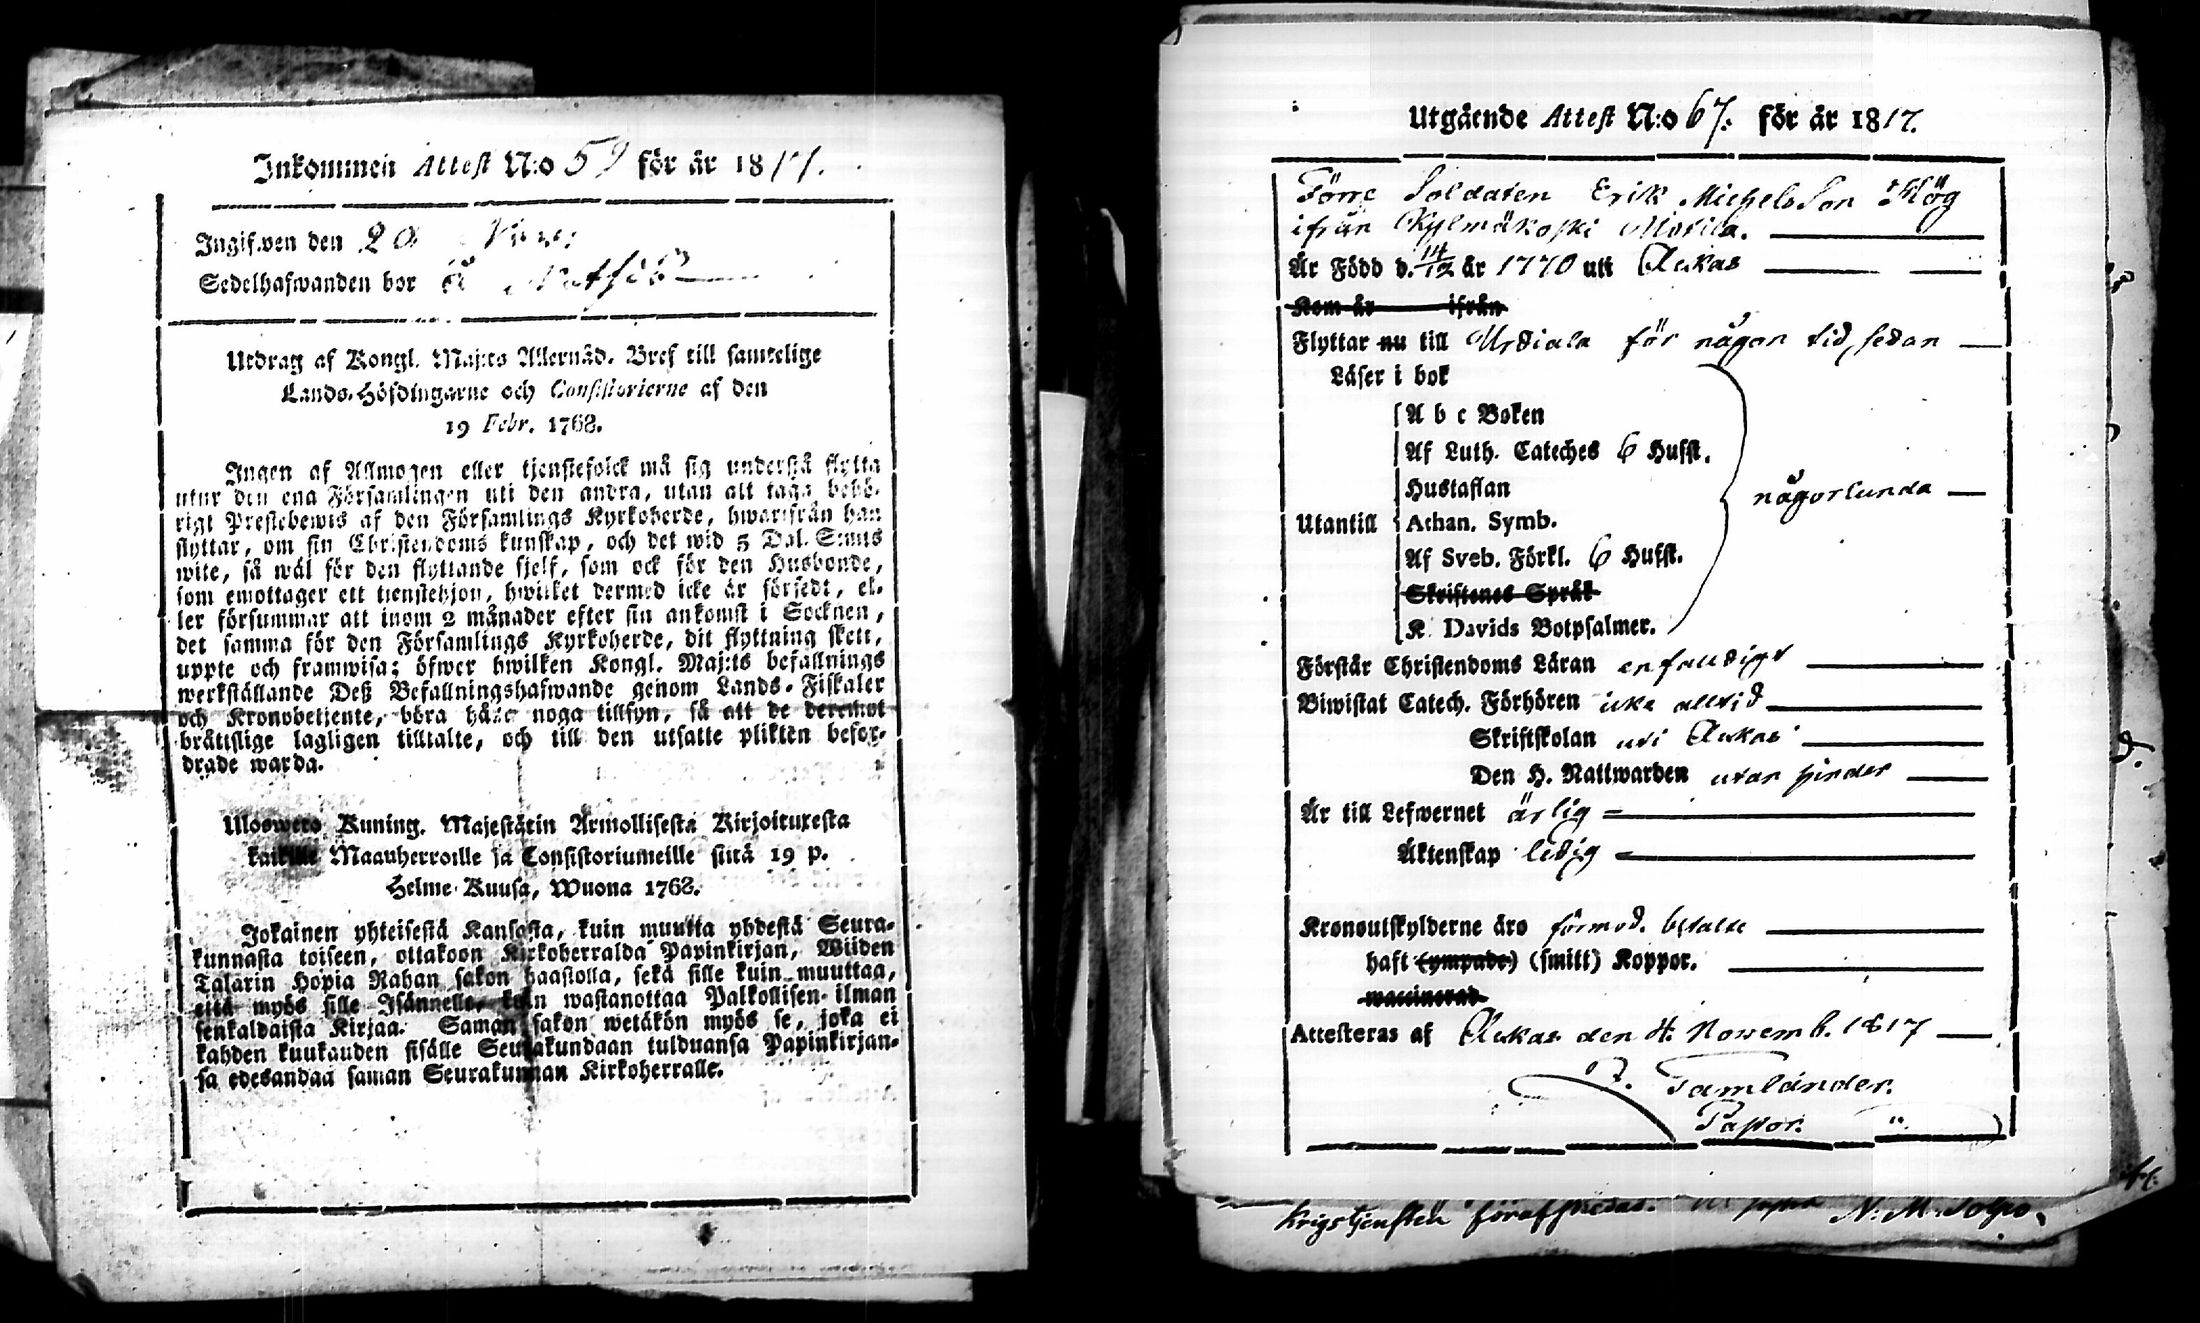 Inkommen Attest N:o 59 för år 1817.
Ingifwen den 20
Sedelhafwanden bor å
Utdrag af Kongl. Maj:ts Allernåd. Bref till samtelige
Lands-Höfdingarne och Consistorierne af den
19 Febr. 1768.
Ingen af Allmogen eller tjenstefolck må sig understå flytta
utur den ena Församlingen uti den andra, utan att taga behö-
rigt Prestebewis af den Församlings Kyrkoherde, hwarifrån han
flyttar, om sin Christendoms kunskap, och det wid 5 Dal. S:mts
wite, så wäl för den flyttande sjelf, som ock för den Husbonde,
som emottager ett tienstehjon, hwilket dermed icke är försedt, el-
ler försummar att inom 2 månader efter sin ankomst i Socknen,
det samma för den Församlings Kyrkoherde, dit flyttning skett,
uppte och framwisa; öfwer hwilken Kongl. Maj:ts befallnings
werkställande Deß Befallningshafwande genom Lands-Fiskaler
och Kronobetjente, böra hafwa noga tillsyn, så att de deremot
bråttslige lagligen tilltalte, och till den utsatte plikten befor-
drade warda.
Uloswero Kuning. Majestätin Armollisesta Kirjoituxesta
kaikille Maanherroille ja Consistoriumeille siitä 19 p.
Helme-Kuusa, Wuona 1768.
Jokainen yhteisestä Kansasta, kuin muutta yhdestä Seura-
kunnasta toiseen, ottakoon Kirkoherralda Papinkirjan, Wiiden
Talarin Hopia Rahan sakon haastolla, sekä sille kuin muuttaa,
että myös sille Isännelle, kuin wastanottaa Palkollisen ilman
senkaldaista Kirjaa. Saman sakon wetäkön myös se, joka ei
kahden kuukauden sisälle Seurakundaan tulduansa Papinkirjan-
sa edesandaa saman Seurakunnan Kirkoherralle.
Utgående Attest N:o 67. för år 1817.
Förre Soldaten Erik Michelsson Hög
ifrån Kylmäkoski Mörila.
Är Född d. 14/12 år 1770 uti Ackas
Kom år ifrån
Flyttar nu till Urdiala för någon tid, sedan
Läser i bok
A b c Boken
Af Luth. Cateches 6 Hufst.
Hustaflan
Utantill Athan. Symb. någorlunda
Af Sveb. Förkl. 6 Hufst.
Skriftenes Språk
K. Davids Botpsalmer.
Förstår Christendoms Läran enfaldigt
Biwistat Catech. Förhören icke alltid
Skriftskolan uti Ackas
Den H. Nattwarden utan hinder
Är till Lefwernet ärlig
Äktenskap ledig
Kronoutskylderne äro förmod. betalte
haft (ympade) (smitt) Koppor.
waccinerad
Attesteras af Ackas den 4. Novemb. 1817
J. Tamlander.
Pastor.
Krigstjensten N: M: